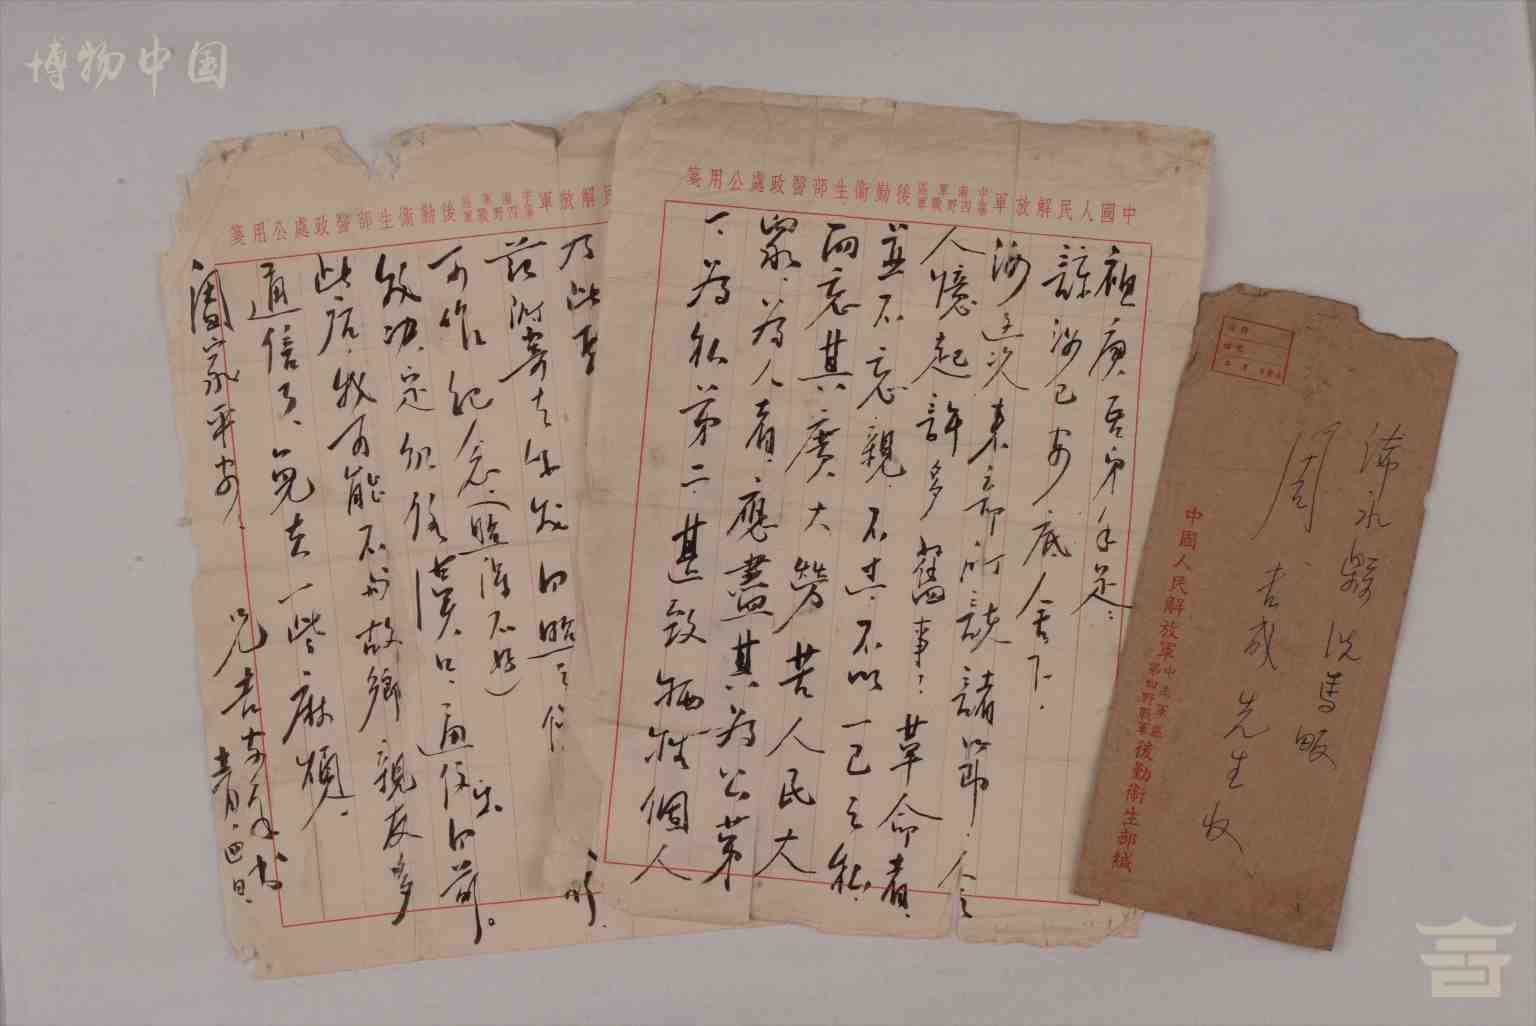 博物中国
中國人民解放軍中南軍區第四野戰軍後勤衛生部醫政處公用箋
祖庚吾弟手足：
諒汝已安底舍下．
汝這次來部所談諸節．令
人憶起許多舊事：革命者．
並不忘親．不過不以一己之私．
而忘其廣大勞苦人民大
眾．為人者．應盡其為公第
一．為私第二．甚至致犧牲個人
乃此
茲附寄去
可作紀念．（照得不好）
效功．定
漢口．通信
此后．我可能不與故鄉親友多
通信了．免去一些麻煩．
闔家平安．
兄吉安手書
四日．
民解放軍中南軍區第四野戰軍後勤衛生部醫政處公用箋
浠水縣洗馬畈
周吉成先生收
中國人民解放軍中南軍區第四野戰軍後勤衛生部緘